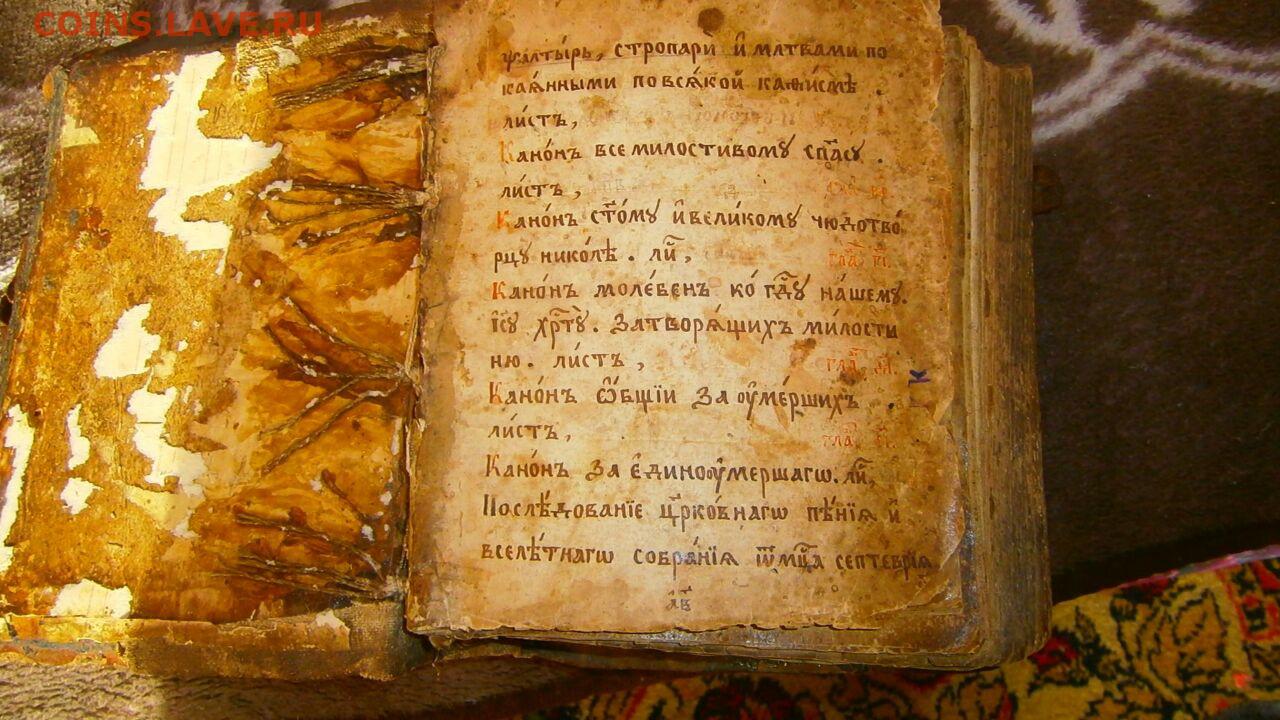 COINS.LAVE.RU
ѱалты́рь, стропарѝ и҆ млтвами по
кая́нными по вся́кой каѳисмѣ .
ли́стъ,
Кано́нъ всемилостивому спа́су .
ли́стъ ,
Кано́нъ ст҃о́му и҆ вели́кому чюдотво́
рцу нико́лѣ . ли҃ ,
Кано́нъ моле́бенъ ко гд҃у на́шему .
і҆с҃у хрⷭ҇ту . Затворя́щихъ ми́лосты
ню . ли́стъ , гла̑
Кано́нъ ѻ҆́бщїи за оу҆ме́ршихъ
ли́стъ , гла̑
Кано́нъ за є҆диноꙋме́ршагѡ . ли҃ ,
Послѣ́дованїе црко́внагѡ пѣ́нїѧ и҆
вселѣ́тнагѡ собра́нїѧ ѿ мц҃а септе́врїѧ